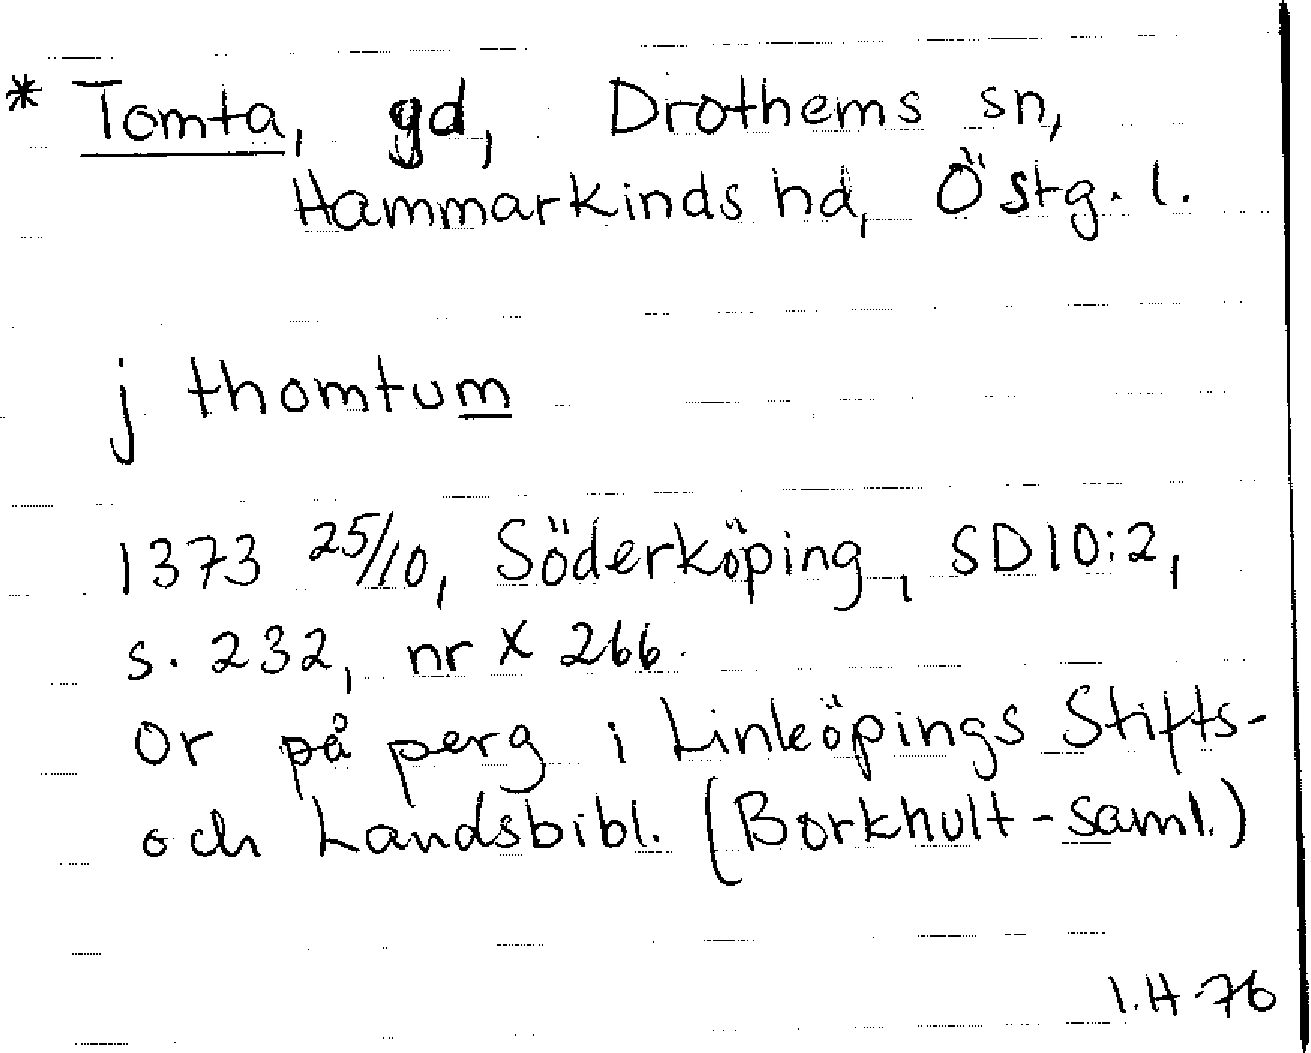 * Tomta, gd, Drothems sn,
Hammarkinds hd, Östg. l.
j thomtum
1373 25/10, Söderköping, SD10:2,
s. 232, nr X 266.
Or på perg i Linköpings Stifts-
och Landsbibl. (Borkhult-saml.)
I.H 76